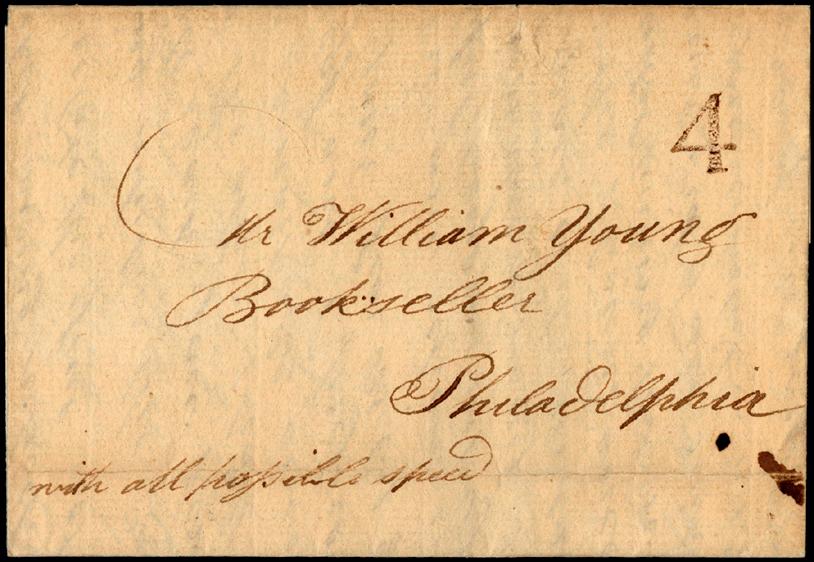 4
Mr William Young
Bookseller
Philadelphia
with all possible speed